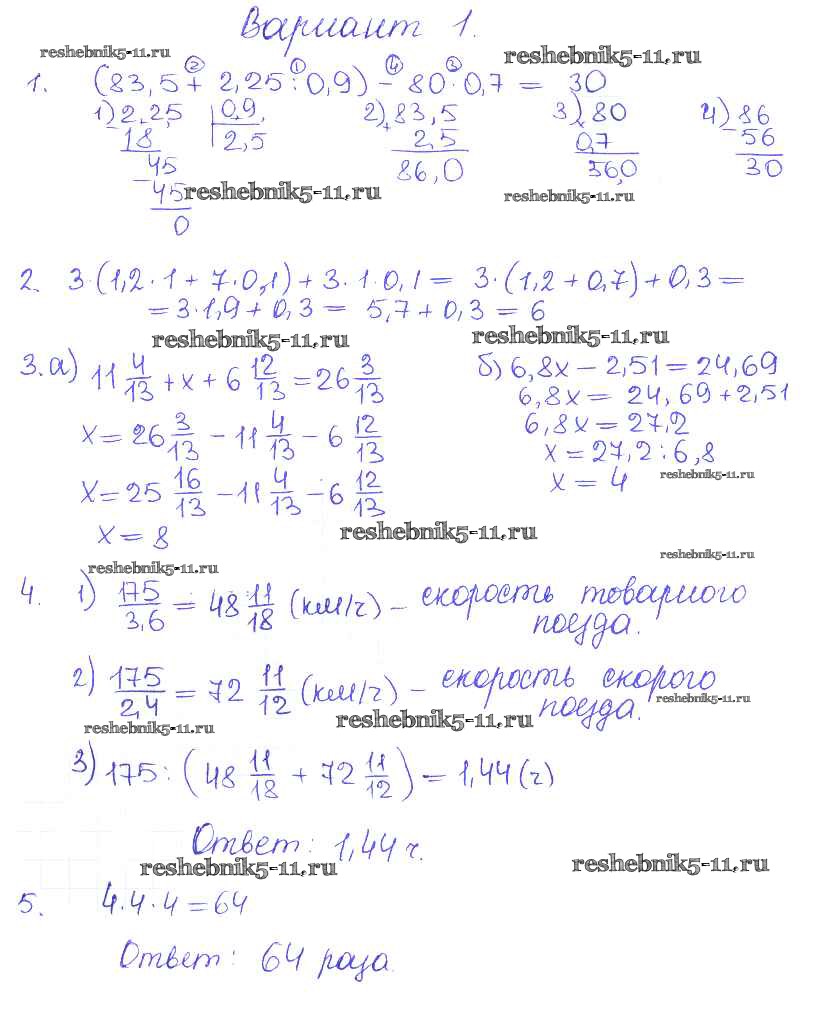 Вариант 1.
reshebnik5-11.ru
reshebnik5-11.ru
② ① ④ ③
1. (83,5 + 2,25 : 0,9) - 80 · 0,7 = 30
1) 2,25 | 0,9
18 | 2,5
45
45
0
2) 83,5
+ 2,5
86,0
3) 80
× 0,7
56,0
4) 86
- 56
30
reshebnik5-11.ru
reshebnik5-11.ru
2. 3·(1,2·1 + 7·0,1) + 3·1·0,1 = 3·(1,2 + 0,7) + 0,3 =
= 3·1,9 + 0,3 = 5,7 + 0,3 = 6
reshebnik5-11.ru
reshebnik5-11.ru
3. а) 11 4/13 + x + 6 12/13 = 26 3/13
x = 26 3/13 - 11 4/13 - 6 12/13
x = 25 16/13 - 11 4/13 - 6 12/13
x = 8
б) 6,8x - 2,51 = 24,69
6,8x = 24,69 + 2,51
6,8x = 27,2
x = 27,2 : 6,8
x = 4
reshebnik5-11.ru
reshebnik5-11.ru
reshebnik5-11.ru
reshebnik5-11.ru
4. 1) 175/3,6 = 48 11/18 (км/ч) - скорость товарного
поезда.
2) 175/2,4 = 72 11/12 (км/ч) - скорость скорого
поезда.
reshebnik5-11.ru
reshebnik5-11.ru
reshebnik5-11.ru
3) 175 : (48 11/18 + 72 11/12) = 1,44 (ч)
Ответ: 1,44 ч.
reshebnik5-11.ru
reshebnik5-11.ru
5. 4·4·4 = 64
Ответ: 64 раза.